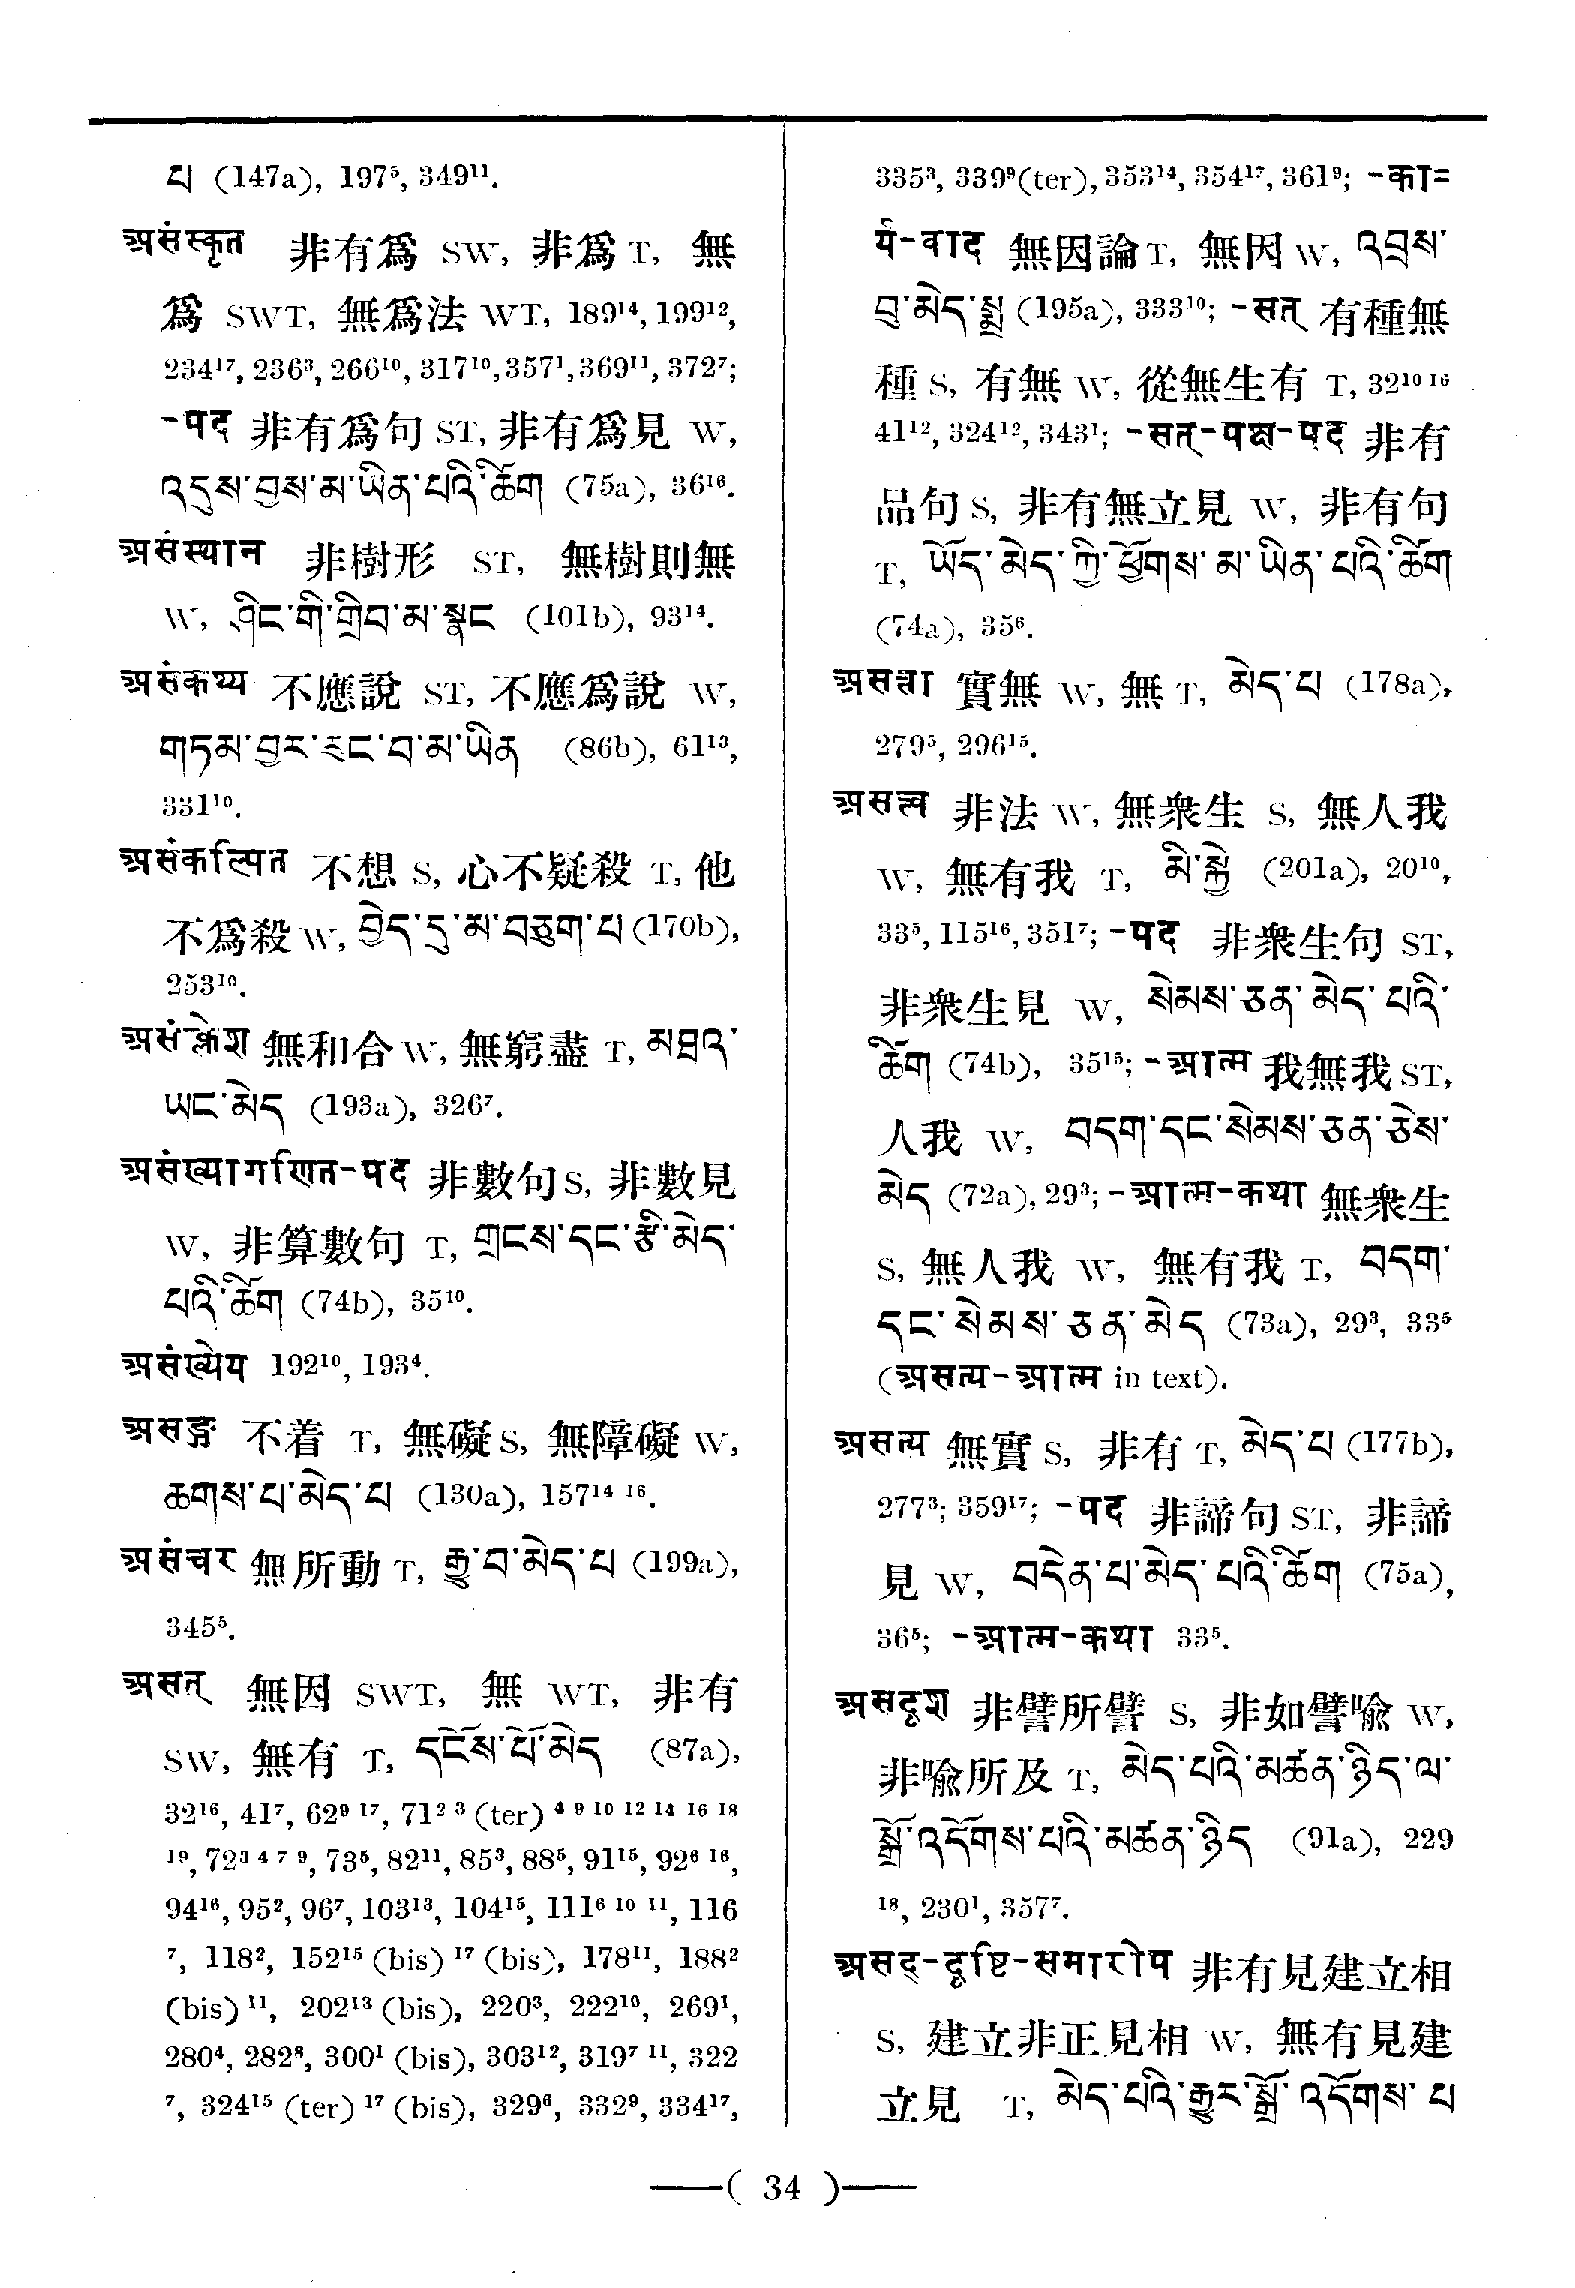 པ (147a), 197⁵, 349¹¹.
असंस्कृत 非有爲 SW, 非爲 T, 無
爲 SWT, 無爲法 WT, 189¹⁴, 199¹²,
234¹⁷, 236³, 266¹⁰, 317¹⁰, 357¹, 369¹¹, 372⁷;
-पद 非有爲句 ST, 非有爲見 W,
འདུས་བྱས་མ་ཡིན་པའི་ཚིག (75a), 36¹⁶.
असंस्थान 非樹形 ST, 無樹則無
W, ཤིང་གི་གྲིབ་མ་སྣང (101b), 93¹⁴.
असंकथ्य 不應說 ST, 不應爲說 W,
གཏམ་བྱར་རུང་བ་མ་ཡིན (86b), 61¹³,
331¹⁰.
असंकल्पित 不想 S, 心不疑殺 T, 他
不爲殺 W, བྱེད་དུ་མ་བཅུག་པ (170b),
253¹⁰.
असंक्लेश 無和合 W, 無窮盡 T, མཐའ་
ཡང་མེད (193a), 326⁷.
असंख्यागणित-पद 非數句 S, 非數見
W, 非算數句 T, གྲངས་དང་རྩི་མེད་
པའི་ཚིག (74b), 35¹⁰.
असंख्येय 192¹⁰, 193⁴.
असङ्ग 不着 T, 無礙 S, 無障礙 W,
ཆགས་པ་མེད་པ (130a), 157¹⁴ ¹⁶.
असंचर 無所動 T, རྒྱུ་བ་མེད་པ (199a),
345⁵.
असत् 無因 SWT, 無 WT, 非有
SW, 無有 T, དངོས་པོ་མེད (87a),
32¹⁶, 41⁷, 62⁹ ¹⁷, 71² ³ (ter) ⁴ ⁹ ¹⁰ ¹² ¹⁴ ¹⁶ ¹⁸
¹⁹, 72³ ⁴ ⁷ ⁹, 73⁵, 82¹¹, 85³, 88⁵, 91¹⁵, 92⁶ ¹⁶,
94¹⁶, 95², 96⁷, 103¹³, 104¹⁵, 111⁶ ¹⁰ ¹¹, 116
⁷, 118², 152¹⁵ (bis) ¹⁷ (bis), 178¹¹, 188²
(bis) ¹¹, 202¹³ (bis), 220³, 222¹⁰, 269¹,
280⁴, 282⁸, 300¹ (bis), 303¹², 319⁷ ¹¹, 322
⁷, 324¹⁵ (ter) ¹⁷ (bis), 329⁶, 332⁹, 334¹⁷,
335³, 339⁹(ter), 353¹⁴, 354¹⁷, 361⁹; -का=
र्य-वाद 無因論 T, 無因 W, འབྲས་
བུ་མེད་སྨྲ (195a), 333¹⁰; -सत् 有種無
種 S, 有無 W, 從無生有 T, 32¹⁰ ¹⁶
41¹², 324¹², 343¹; -सत्-पक्ष-पद 非有
品句 S, 非有無立見 W, 非有句
T, ཡོད་མེད་ཀྱི་ཕྱོགས་མ་ཡིན་པའི་ཚིག
(74a), 35⁶.
असत्ता 實無 W, 無 T, མེད་པ (178a),
279⁵, 296¹⁵.
असत्त्व 非法 W, 無衆生 S, 無人我
W, 無有我 T, མི་སྐྱེ (201a), 20¹⁰,
33⁵, 115¹⁶, 351⁷; -पद 非衆生句 ST,
非衆生見 W, སེམས་ཅན་མེད་པའི་
ཚིག (74b), 35¹⁵; -आत्म 我無我 ST,
人我 W, བདག་དང་སེམས་ཅན་ཅེས་
མེད (72a), 29³; -आत्म-कथा 無衆生
S, 無人我 W, 無有我 T, བདག་
དང་སེམས་ཅན་མེད (73a), 29³, 33⁵
(असत्य-आत्म in text).
असत्य 無實 S, 非有 T, མེད་པ (177b),
277³; 359¹⁷; -पद 非諦句 ST, 非諦
見 W, བདེན་པ་མེད་པའི་ཚིག (75a),
36⁵; -आत्म-कथा 33⁵.
असदृश 非譬所譬 S, 非如譬喩 W,
非喩所及 T, མེད་པའི་མཚན་ཉིད་ལ་
སྒྲོ་འདོགས་པའི་མཚན་ཉིད (91a), 229
¹⁸, 230¹, 357⁷.
असद्-दृष्टि-समारोप 非有見建立相
S, 建立非正見相 W, 無有見建
立見 T, མེད་པའི་རྒྱུར་སྒྲོ་འདོགས་པ
—( 34 )—